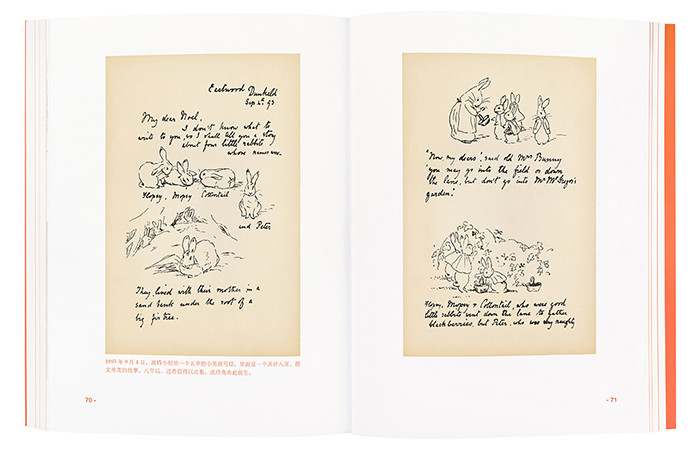 Eastwood Dunkeld
Sep 4th 93
My dear Noel,
I don't know what to
write to you, so I shall tell you a story
about four little rabbits
whose names were
Flopsy, Mopsy Cottontail
and Peter
They lived with their mother in a
sand bank under the root of a
big fir tree.
1893 年 9 月 4 日，波特小姐给一个五岁的小男孩写信，里面是一个共计八页、图
文并茂的故事。八年后，这些信得以出版，彼得兔由此诞生。
70 •
"Now, my dears", said old Mrs Bunny
you may go into the field or down
the lane, but don't go into Mr McGregor's
garden."
Flopsy, Mopsy & Cottontail, who were good
little rabbits went down the lane to gather
blackberries, but Peter, who was very naughty
• 71